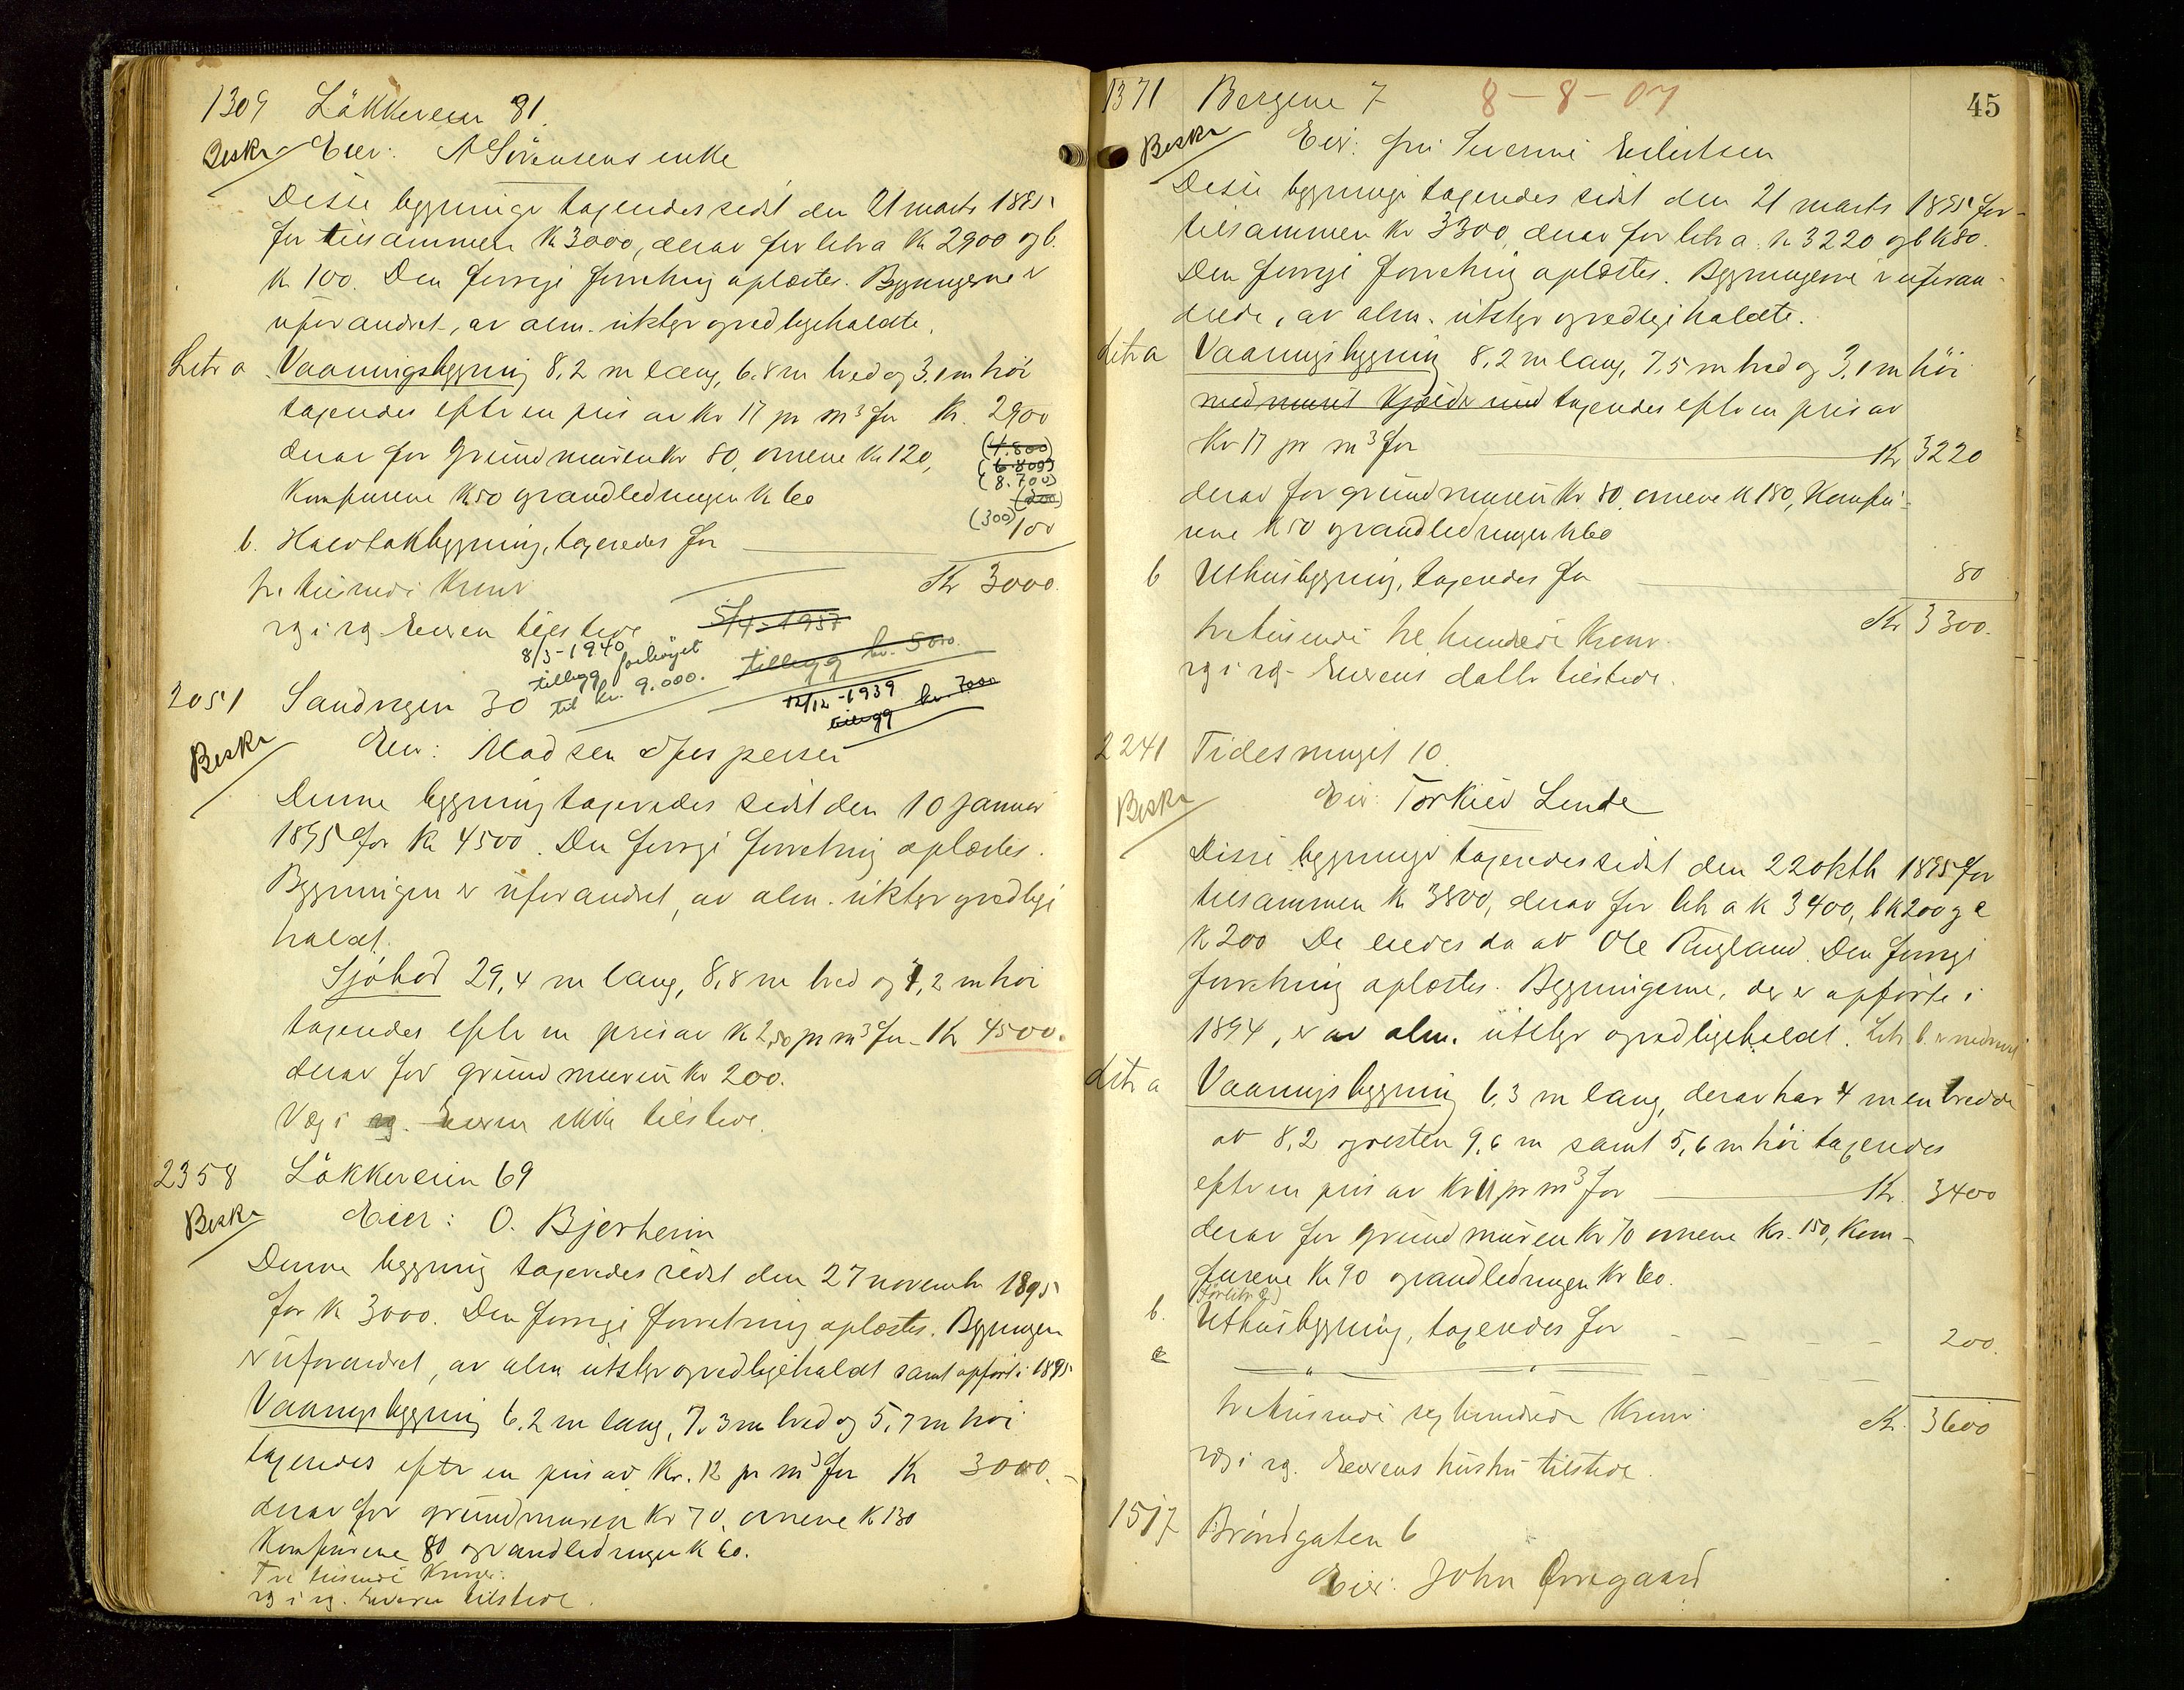 1309 Løkkeveien 81.
Beskr Eier: A Sørensens enke
Disse bygninger taxeredes sidst den 21 marts 1895
for tilsammen Kr 3000, derav for litra Kr 2900 og b.
Kr 100. Den forrige forretning oplæstes. Bygningerne er
uforandret, av alm. utstyr og vedligeholdte.
Litr a Vaaningsbygning 8,2 m lang, 6,8 m bred og 3,1 m høi
taxeredes efter en pris av Kr 17 pr m³ for Kr. 2900
derav for Grundmuren Kr 80, ovnene Kr 120, (4.800)
(6.800)
(8.700)
Komfurene Kr 50 og vandledningen Kr 60 (200)
(300) 100
b. Halvtakbygning, taxeredes for
Kr 3000.
tre tusinde Kroner
og i rg. Eieren tilstede 5/4-1937
8/3-1940 tillegg kr. 5000.
tillegg forhøiet
til kr. 9.000.
12/12-1939
tillegg kr. 7000
2051 Sandvigen 30
Beskr Eier: Madsen & Jespersen
Denne bygning taxeredes sidst den 10 Januar
1895 for Kr 4500. Den forrige forretning oplæstes.
Bygningen er uforandret, av alm. utstyr og vedlige
holdt.
Sjøbod 29,4 m lang, 8,8 m bred og 7,2 m høi
taxeredes efter en pris av Kr 2,50 pr m³ for Kr 4500.
derav for grundmuren Kr 200.
Vog i rg. Eieren ikke tilstede.
2358 Løkkeveien 69
Beskr Eier: O. Bjerheim
Denne bygning taxeredes sidst den 27 novembr 1895
for Kr 3000. Den forrige forretning oplæstes. Bygningen
er uforandret, av alm utstyr og vedligeholdt samt opført i 1895
Vaaningsbygning 6.2 m lang, 7,3 m bred og 5,7 m høi
taxeredes efter en pris av Kr. 12 pr m³ for Kr 3000.-
derav for grundmuren Kr 70, ovnene Kr 130
Komfurene 80 og vandledningen Kr 60.
Tre tusinde Kroner.
og i rg. Eieren tilstede.
45
1371 Bergene 7 8-8-07
Beskr Eier: frü Severine Eilertsen
Disse bygninger taxeredes sidst den 21 marts 1895 for
tilsammen Kr 3300, derav for litr a. Kr 3220 og b Kr 80.
Den forrige forretning oplæstes. Bygningerne er uforan-
drede, av alm. utstyr og vedligeholdte.
Litr a Vaaningsbygning 8,2 m lang, 7,5 m bred og 3,1 m høi
med muret Kjelder und taxeredes efter en pris av
Kr 17 pr m³ for Kr 3220
derav for grundmuren Kr 80, ovnene Kr 180, Komfu-
rene Kr 50 og vandledningen Kr 60
b Uthusbygning, taxeredes for 80
Kr 3300.
tre tusinde tre hundrede Kroner.
og i rg. Eierens datter tilstede.
2241 Tidesmuget 10.
Beskr Eier: Torkild Lende
Disse bygninger taxeredes sidst den 22 oktb 1895 for
tilsammen Kr 3800, derav for litr a Kr 3400, b Kr 200 og c
Kr 200 De eiedes da av Ole Rugland. Den forrige
forretning oplæstes. Bygningerne, der er opførte i
1894, er av alm. utstyr og vedligeholdt. Litr b. er nedrevet
Litr a Vaaningsbygning 6,3 m lang, derav har 4 m en bredde
av 8,2 og resten 9,6 m samt 5,6 m høi taxeredes
efter en pris av Kr 11 pr m³ for Kr. 3400
derav for grundmuren Kr 70 ovnene Kr. 150, Kom-
furene Kr 90 og vandledningen Kr 60.
(før litr c)
b. Uthusbygning, taxeredes for - - - - 200.
c " "
tre tusinde seg hundrede Kroner Kr. 3600
vog i rg. Eierens hustru tilstede.
1517 Brøndgaten 6
Eier: John Ørregaard